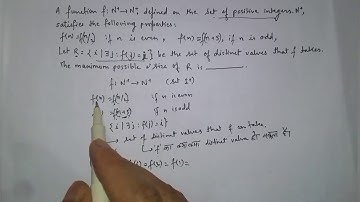 A function f: N⁺→N⁺, defined on the set of positive integers N⁺,
satisfies the following properties:
f(n) = f(n/2) if n is even, f(n) = f(n+5), if n is odd,
Let R = {i | ∃j : f(j) = i} be the set of distinct values that f takes.
The maximum possible size of R is ______.
f: N⁺→N⁺
f(n) = f(n/2) if n is even
if n is odd
{i | ∃j : f(j) = i}
set of distinct values that f can take,
f distinct value
= f(1) =